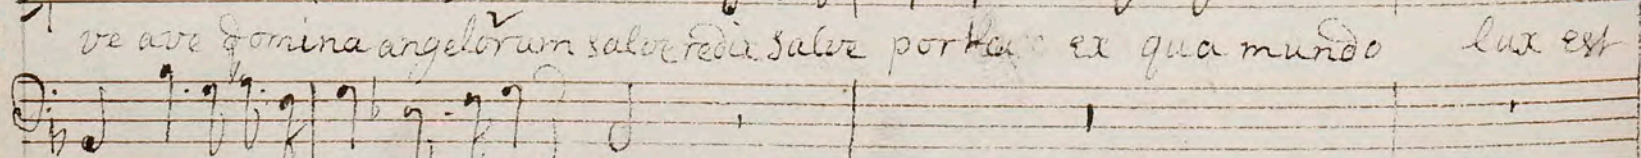 ve ave domina angelorum salve redix salve porta ex qua mundo lux est